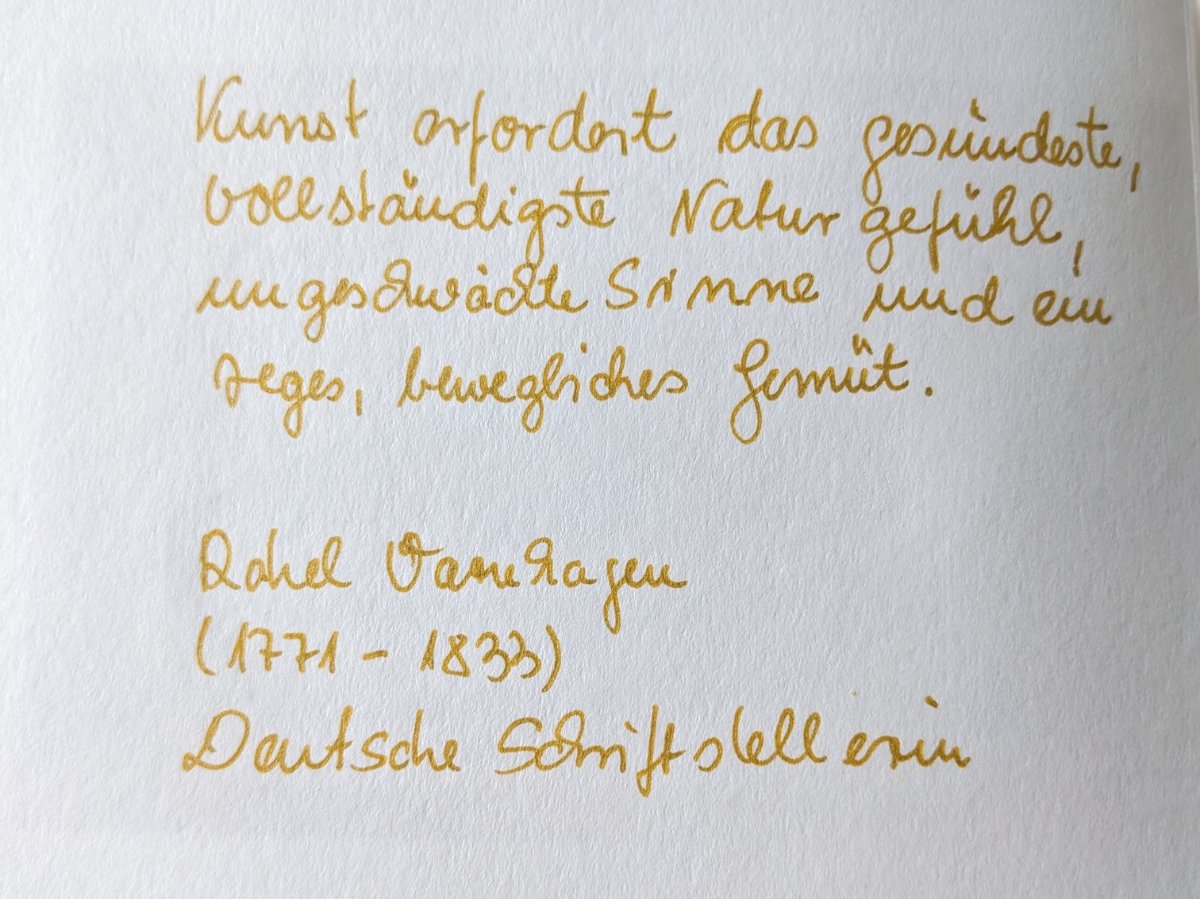 Kunst erfordert das gesündeste,
vollständigste Naturgefühl,
ungeschwächte Sinne und ein
reges, bewegliches Gemüt.
Rahel Varnhagen
(1771 - 1833)
Deutsche Schriftstellerin